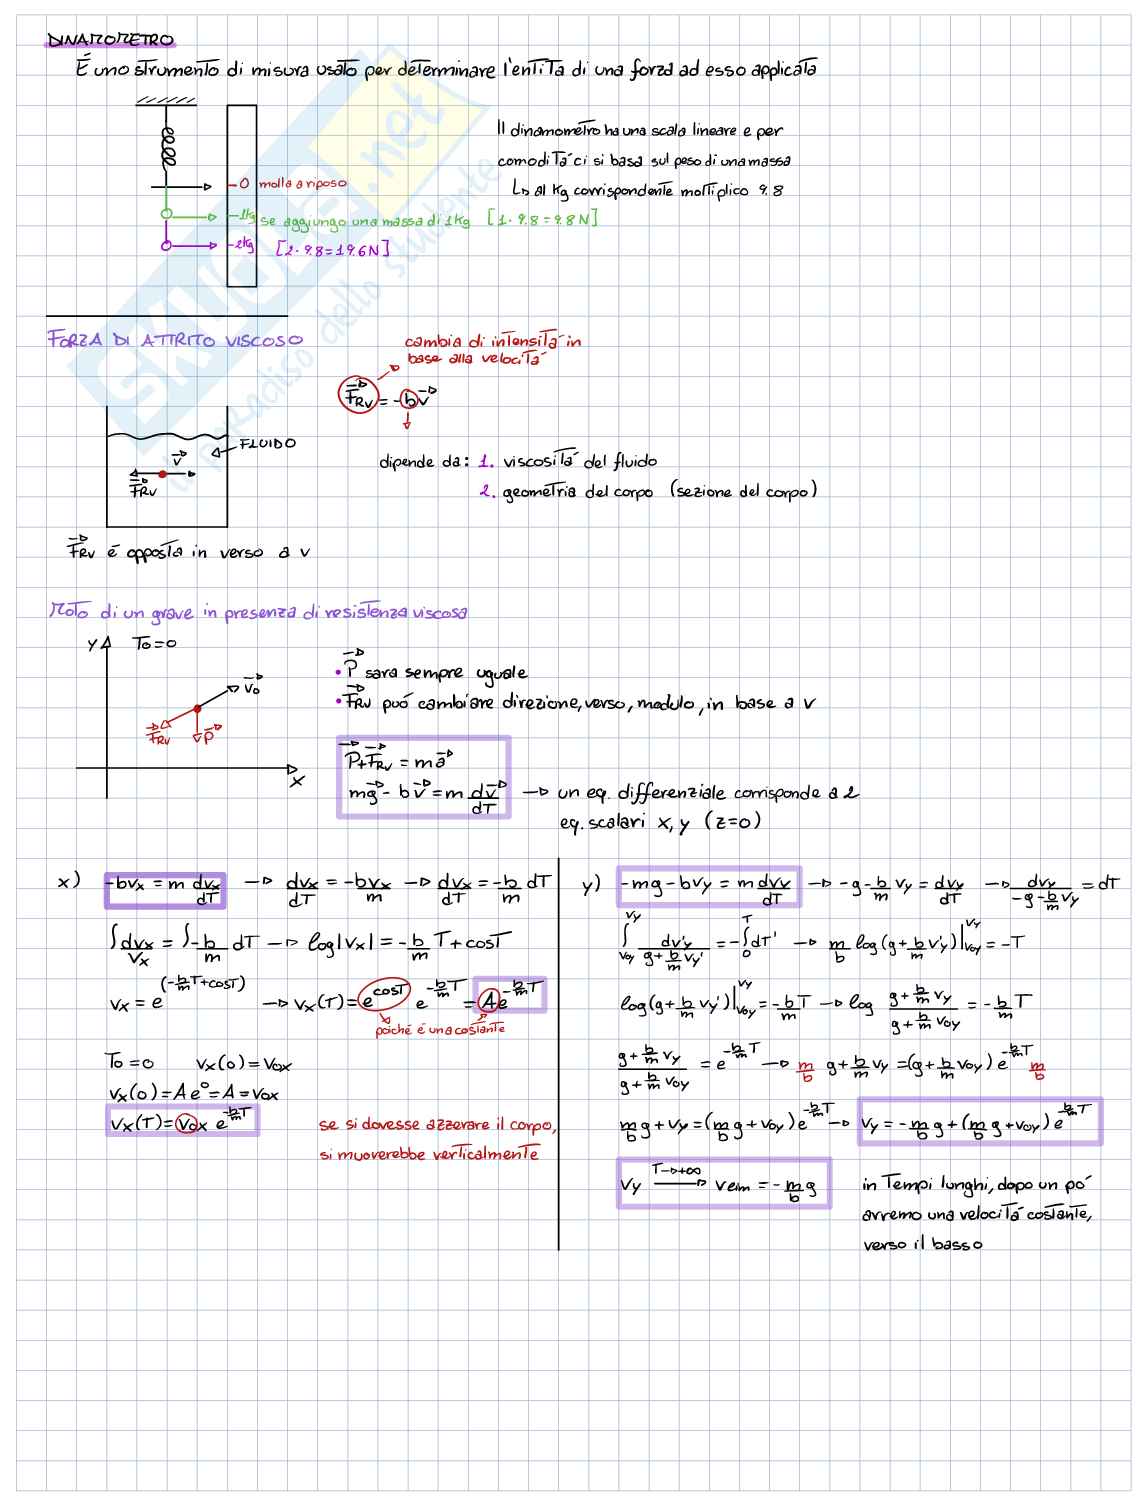 DINAMOMETRO
É uno strumento di misura usato per determinare l'entità di una forza ad esso applicata
Il dinamometro ha una scala lineare e per
comodità ci si basa sul peso di una massa
↳ al kg corrispondente moltiplico 9.8
0 molla a riposo
-1kg se aggiungo una massa di 1kg [1·9.8=9.8N]
-2kg [2·9.8=19.6N]
SKUOLA.net
il paradiso dello studente
FORZA DI ATTRITO VISCOSO
cambia di intensità in
base alla velocità
F⃗RV = -bv⃗
FLUIDO
v⃗
F⃗RV
dipende da: 1. viscosità del fluido
2. geometria del corpo (sezione del corpo)
F⃗RV é opposta in verso a v
Moto di un grave in presenza di resistenza viscosa
y T0=0
v⃗0
F⃗RV P⃗
x
• P⃗ sara sempre uguale
• F⃗RV puó cambiare direzione, verso, modulo, in base a v
P⃗+F⃗RV = ma⃗
mg⃗ - bv⃗ = m dv⃗/dT → un eq. differenziale corrisponde a 2
eq. scalari x, y (z=0)
x) -bvx = m dvx/dT → dvx/dT = -bvx/m → dvx/dT = -b/m dT
∫dvx/vx = ∫-b/m dT → log|vx| = -b/m T + cost
vx = e^(-b/m T+cost) → vx(T) = e^cost e^(-b/m T) = A e^(-b/m T)
poiché é una costante
T0=0 vx(0)=v0x
vx(0)=A e^0=A=v0x
vx(T)=v0x e^(-b/m T)
se si dovesse azzerare il corpo,
si muoverebbe verticalmente
y) -mg - bvy = m dvy/dT → -g - b/m vy = dvy/dT → dvy/(-g - b/m vy) = dT
∫_v0y^vy dv'y/(g+b/m vy') = -∫_0^T dT' → m/b log(g+b/m v'y)|_v0y^vy = -T
log(g+b/m vy')|_v0y^vy = -b/m T → log (g+b/m vy)/(g+b/m v0y) = -b/m T
(g+b/m vy)/(g+b/m v0y) = e^(-b/m T) → m/b g+b/m vy = (g+b/m v0y) e^(-b/m T) m/b
m/b g+vy = (m/b g+v0y) e^(-b/m T) → vy = -m/b g+(m/b g+v0y) e^(-b/m T)
vy T→+∞ → vlim = -m/b g
in tempi lunghi, dopo un pó
avremo una velocitá costante,
verso il basso